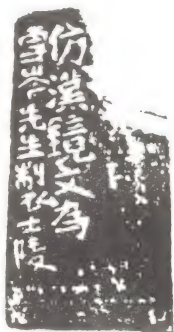 仿漢鏡文為
雪岑先生制士陵